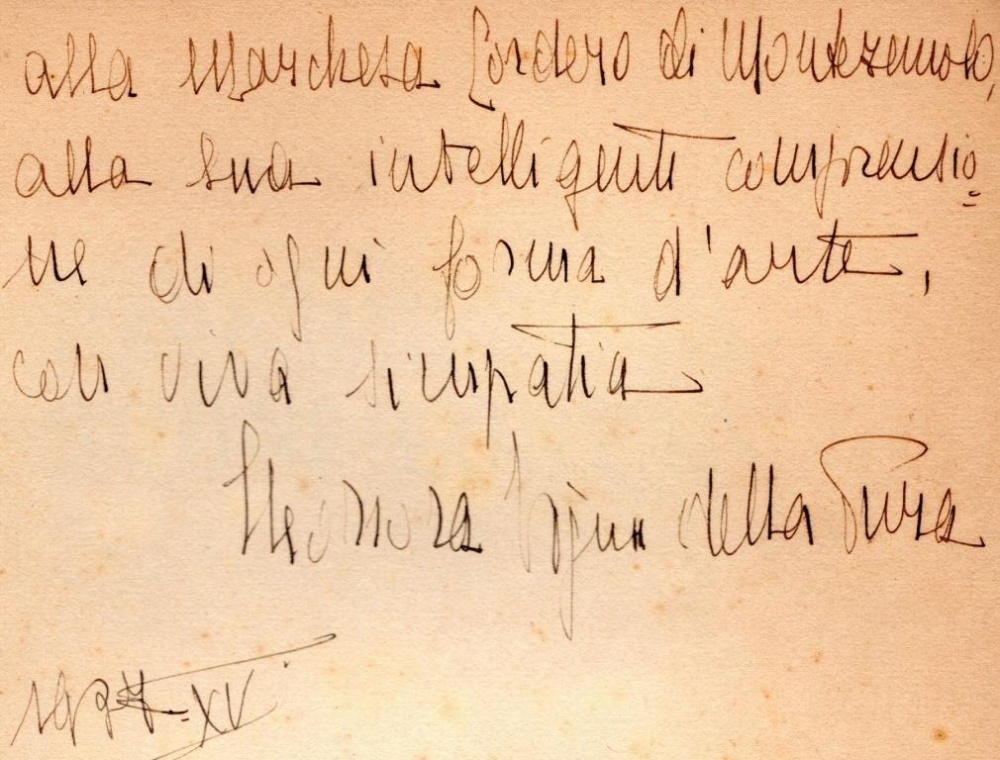 alla Marchesa Cordero di Montezemolo,
alla sua intelligente comprensio=
ne di ogni forma d'arte,
con viva simpatia
Eleonora della
1937-XV